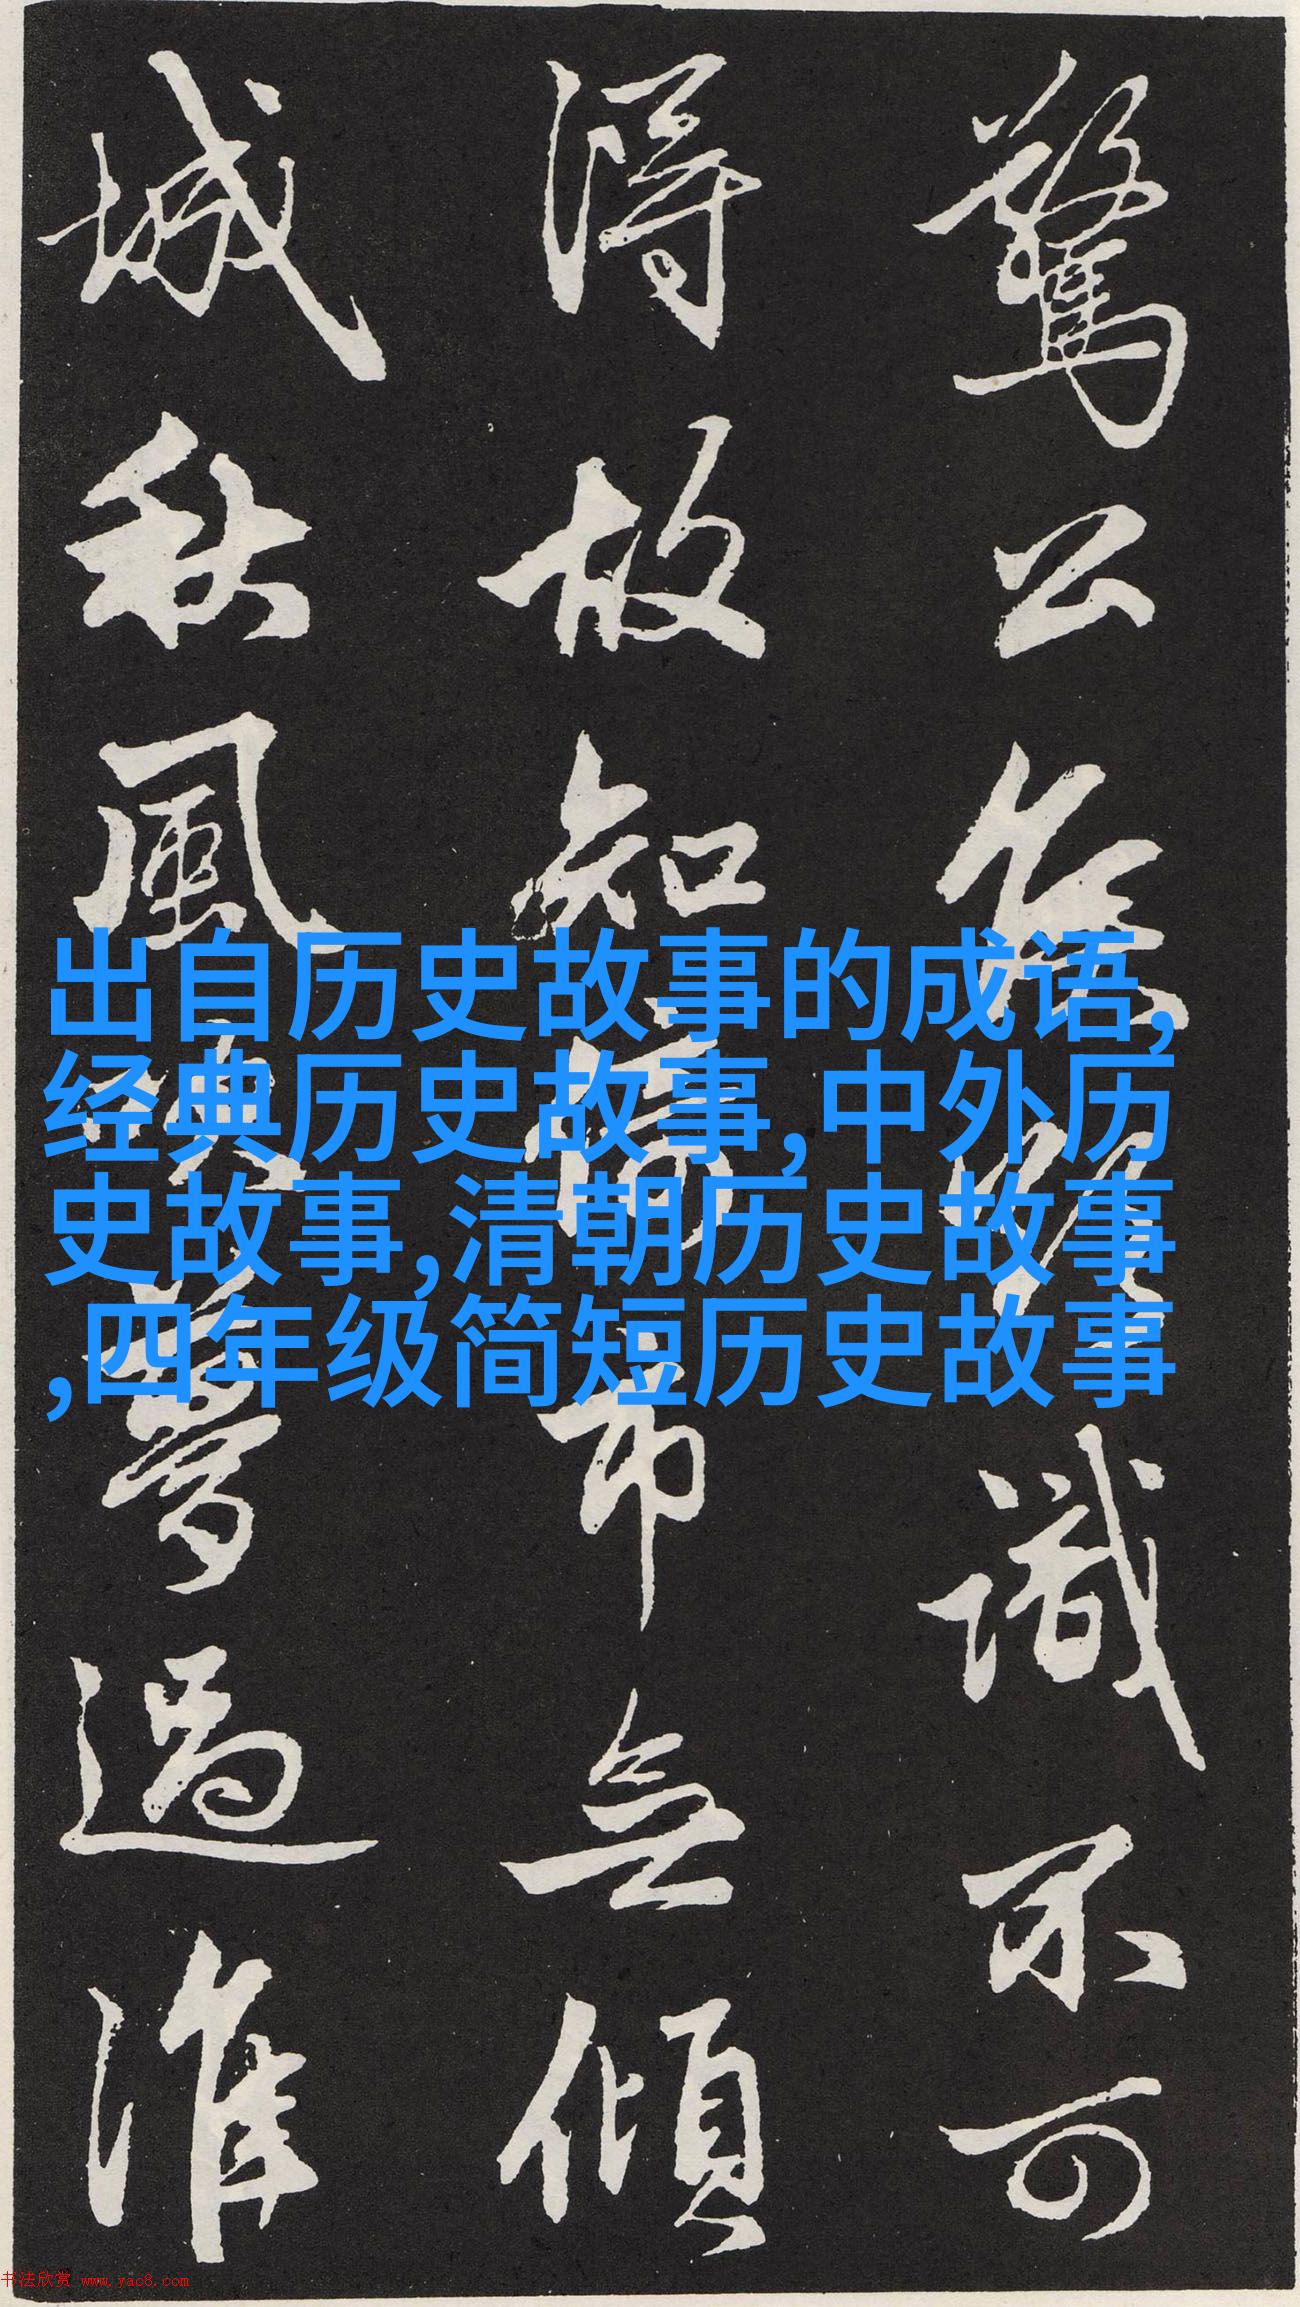 驚公識不可
得故知市無傾
城秋風吹夢過淮
出自历史故事的成语,
经典历史故事,中外历
史故事,清朝历史故事
,四年级简短历史故事
书法欣赏 www.yac8.com